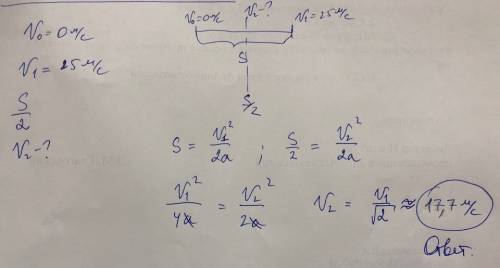 V₀ = 0 м/с
V₁ = 25 м/с
S/2
V₂ - ?
V₀ = 0 м/с V₂ - ? V₁ = 25 м/с
S
S/2
S = V₁²/2a ; S/2 = V₂²/2a
V₁²/4a = V₂²/2a V₂ = V₁/√2 ≈ 17,7 м/с
Ответ.